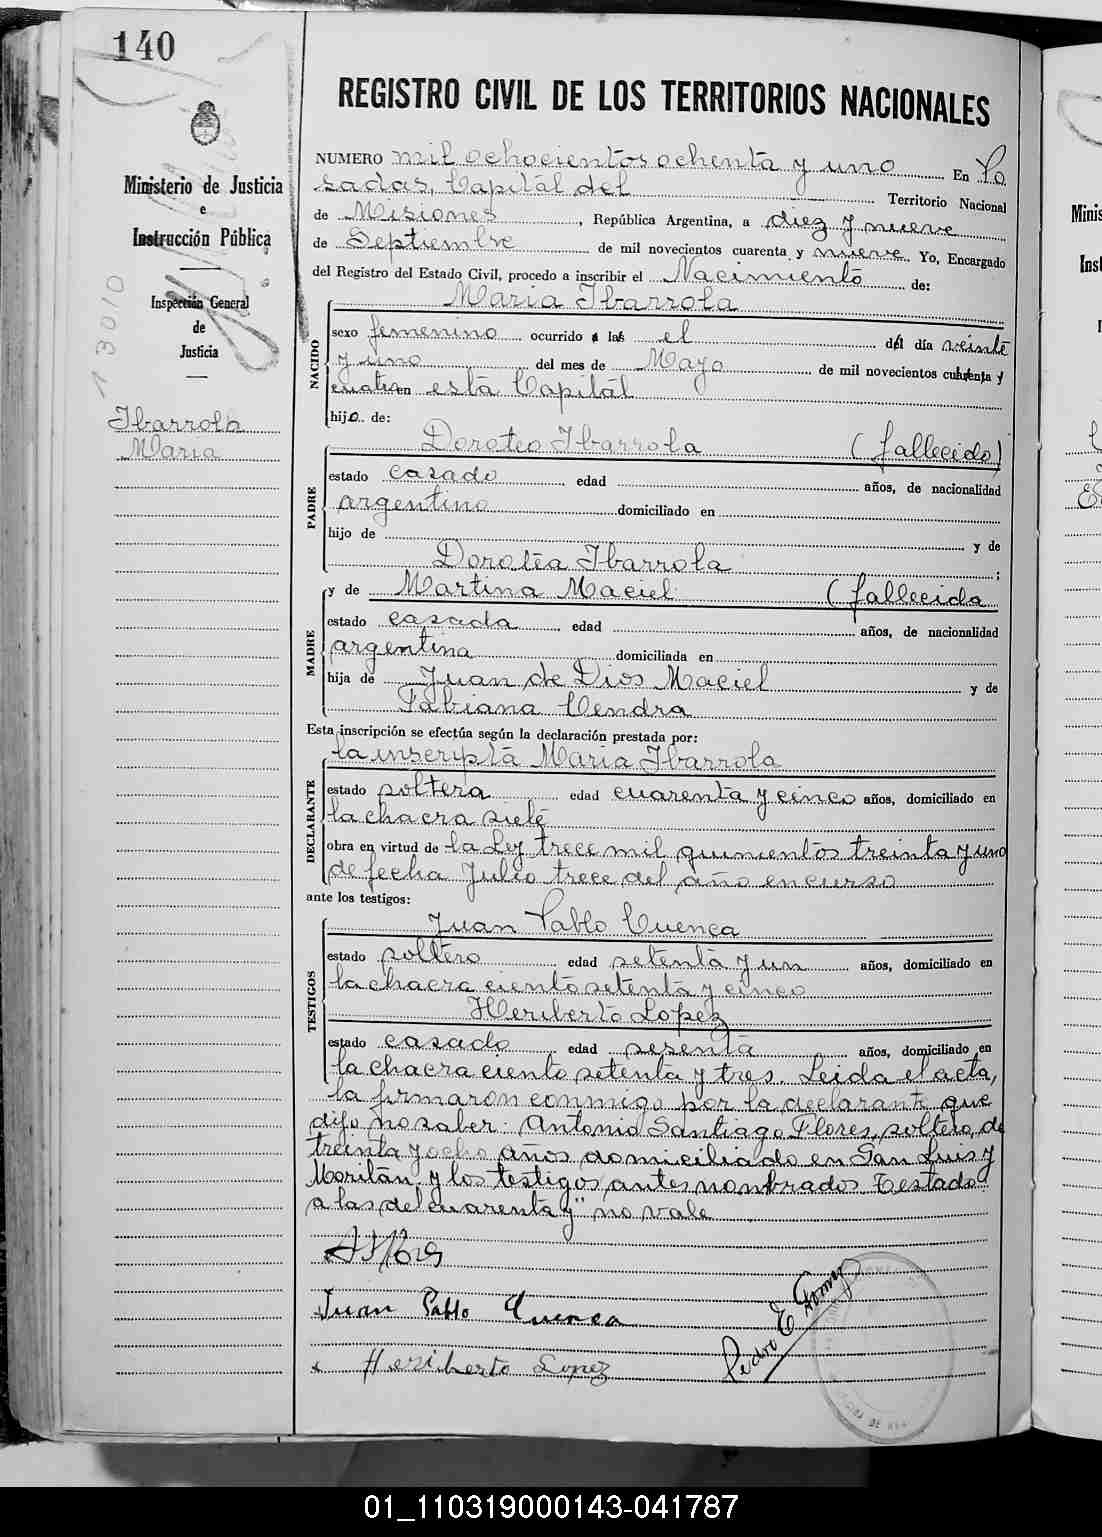 140
REGISTRO CIVIL DE LOS TERRITORIOS NACIONALES
Ministerio de Justicia
e
Instrucción Pública
Inspección General
de
Justicia
13010
Ibarrola
Maria
NUMERO mil ochocientos ochenta y uno En Po
sadas, Capital del Territorio Nacional
de Misiones, República Argentina, a diez y nueve
de Septiembre de mil novecientos cuarenta y nueve Yo, Encargado
del Registro del Estado Civil, procedo a inscribir el Nacimiento de:
NACIDO
Maria Ibarrola
sexo femenino ocurrido a las el del día veinte
y uno del mes de Mayo de mil novecientos cuarenta y
cuatro en esta Capital
hijo de:
PADRE
Doroteo Ibarrola (fallecido)
estado casado edad años, de nacionalidad
argentino domiciliado en
hijo de y de
Dorotea Ibarrola ;
MADRE
y de Martina Maciel (fallecida
estado casada edad años, de nacionalidad
argentina domiciliada en
hija de Juan de Dios Maciel y de
Fabiana Cendra
Esta inscripción se efectúa según la declaración prestada por:
DECLARANTE
la inscripta Maria Ibarrola
estado soltera edad cuarenta y cinco años, domiciliado en
la chacra siete
obra en virtud de la Ley trece mil quinientos treinta y uno
de fecha Julio trece del año en curso
ante los testigos:
TESTIGOS
Juan Pablo Cuenca
estado soltero edad setenta y un años, domiciliado en
la chacra ciento setenta y cinco
Heriberto Lopez
estado casado edad sesenta años, domiciliado en
la chacra ciento setenta y tres. Leida el acta,
la firmaron conmigo por la declarante que
dijo no saber: Antonio Santiago Flores, soltero, de
treinta y ocho años domiciliado en San Luis y
Moritán y los testigos antes nombrados Testado
a las del cuarenta y" no vale
Juan Pablo Cuenca
Heriberto Lopez
Pedro E Gomez
Minis
Ins
01_110319000143-041787